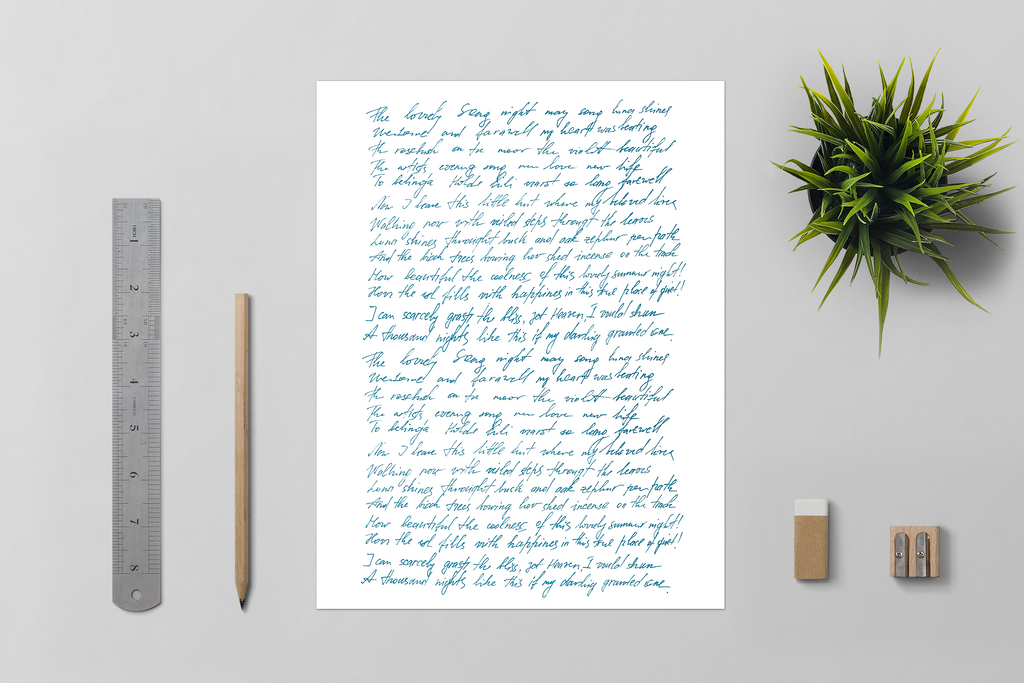 INCH 1 2 3 4 5 6 7 8
The lovely Song night may song luna shines
Welcome and farewell my heart was beating
The rosebush on the moor the violet beautiful
The artists evening song new love new life
To belinda Holde Lili warst so long farewell
Now I leave this little hut where my beloved lives
Walking now with veiled steps through the leaves
Luna shines throught bush and oak zephyr per path
And the birch trees bowing low shed incense on the track
How beautiful the coolness of this lovely summer night!!
How the soul fills with happiness in this true place of quiet!
I can scarcely grasp the bliss, yet Heaven, I would shun
A thousand nights like this if my darling granted one.
The lovely Song night may song luna shines
Welcome and farewell my heart was beating
The rosebush on the moor the violet beautiful
The artists evening song new love new life
To belinda Holde Lili warst so long farewell
Now I leave this little hut where my beloved lives
Walking now with veiled steps through the leaves
Luna shines throught bush and oak zephyr per path
And the birch trees bowing low shed incense on the track
How beautiful the coolness of this lovely summer night!!
How the soul fills with happiness in this true place of quiet!
I can scarcely grasp the bliss, yet Heaven, I would shun
A thousand nights like this if my darling granted one.